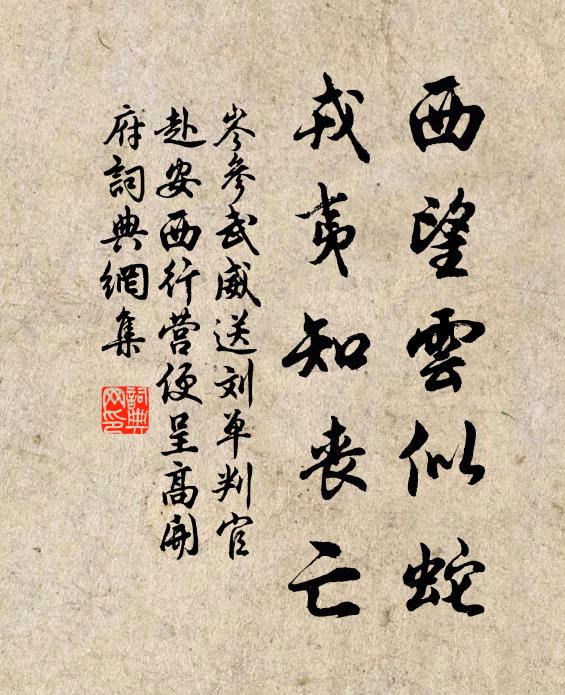 西望雲似蛇
戎夷知喪亡
岑參武威送刘单判官
赴安西行营便呈高開
府詞典網集
詞典
网印